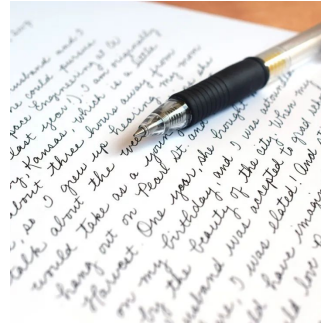 husband and I
he could pursue
pace Engineering at a
last year.) I am originally
y Kansas, which is a little
about three hours away from
, so I grew up hearing my mom
talk about the
would take as a youn
hang out on Pearl St. and
Harvest. One year, she brought
on my birthday, and I was
by the beauty of the city. When my
usband was accepted to grad
, I was elated! And
ld have imagin
ld love